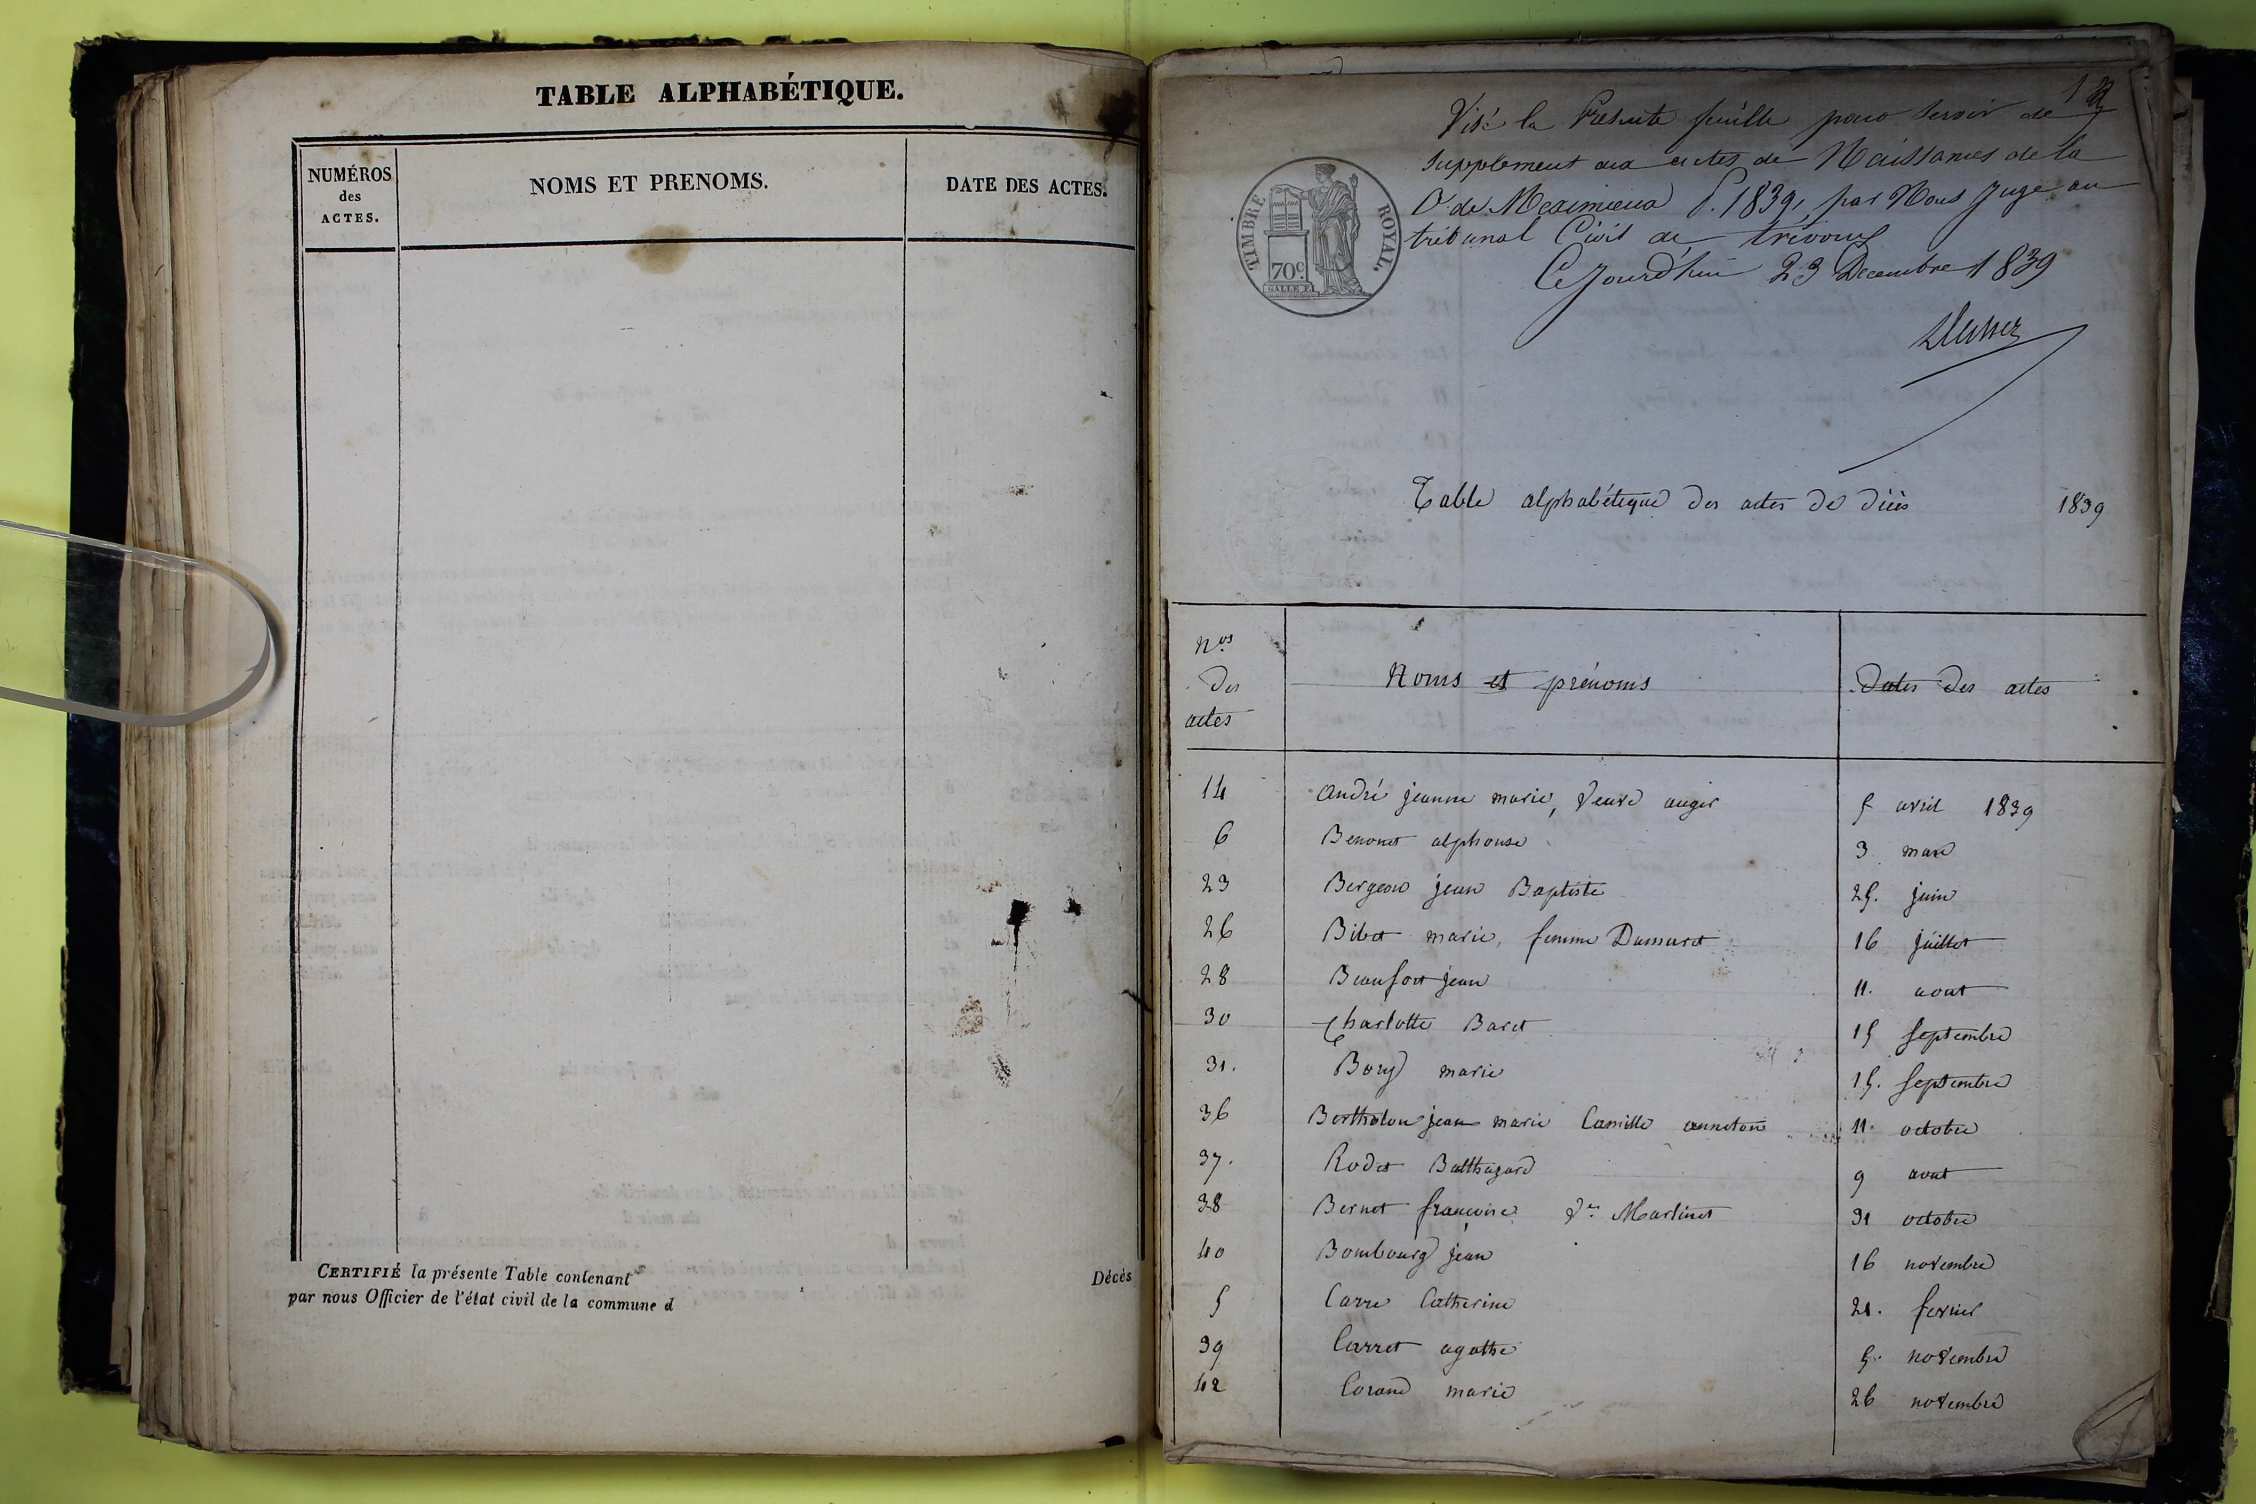 TABLE ALPHABÉTIQUE.
NUMÉROS
des
ACTES.
NOMS ET PRENOMS.
DATE DES ACTES.
CERTIFIÉ la présente Table contenant Décès
par nous Officier de l'état civil de la commune d
Visé la Présente feuille pour servir de
supplement aux actes de Naissances de la
Cne de Meximieux P. 1839, par Nous Juge au
tribunal Civil de trévoux
Ce jourd'hui 23 Decembre 1839
TIMBRE ROYAL.
70c
Table alphabétique des actes de décès 1839
Nos
des
actes
Noms et prénoms
Dates des actes
14 André jeanne marie, veuve auger 5 avril 1839
6 Benonet alphonse 3 mars
23 Bergeon jean Baptiste 25. juin
26 Bibet marie, femme Dumaret 16 juillet
28 Beaufort jean 11. aout
30 Charlotte Baret 15 septembre
31. Bory marie 15. septembre
36 Bertholon jean marie Camille anneton 11 octobre
37. Rodet Balthazard 9 aout
38 Bernet françoise ve Martinet 31 octobre
40 Bombourg jean 16 novembre
5 Carre Catherine 21. fevrier
39 Carret agathe 5. novembre
42 Corand marie 26 novembre